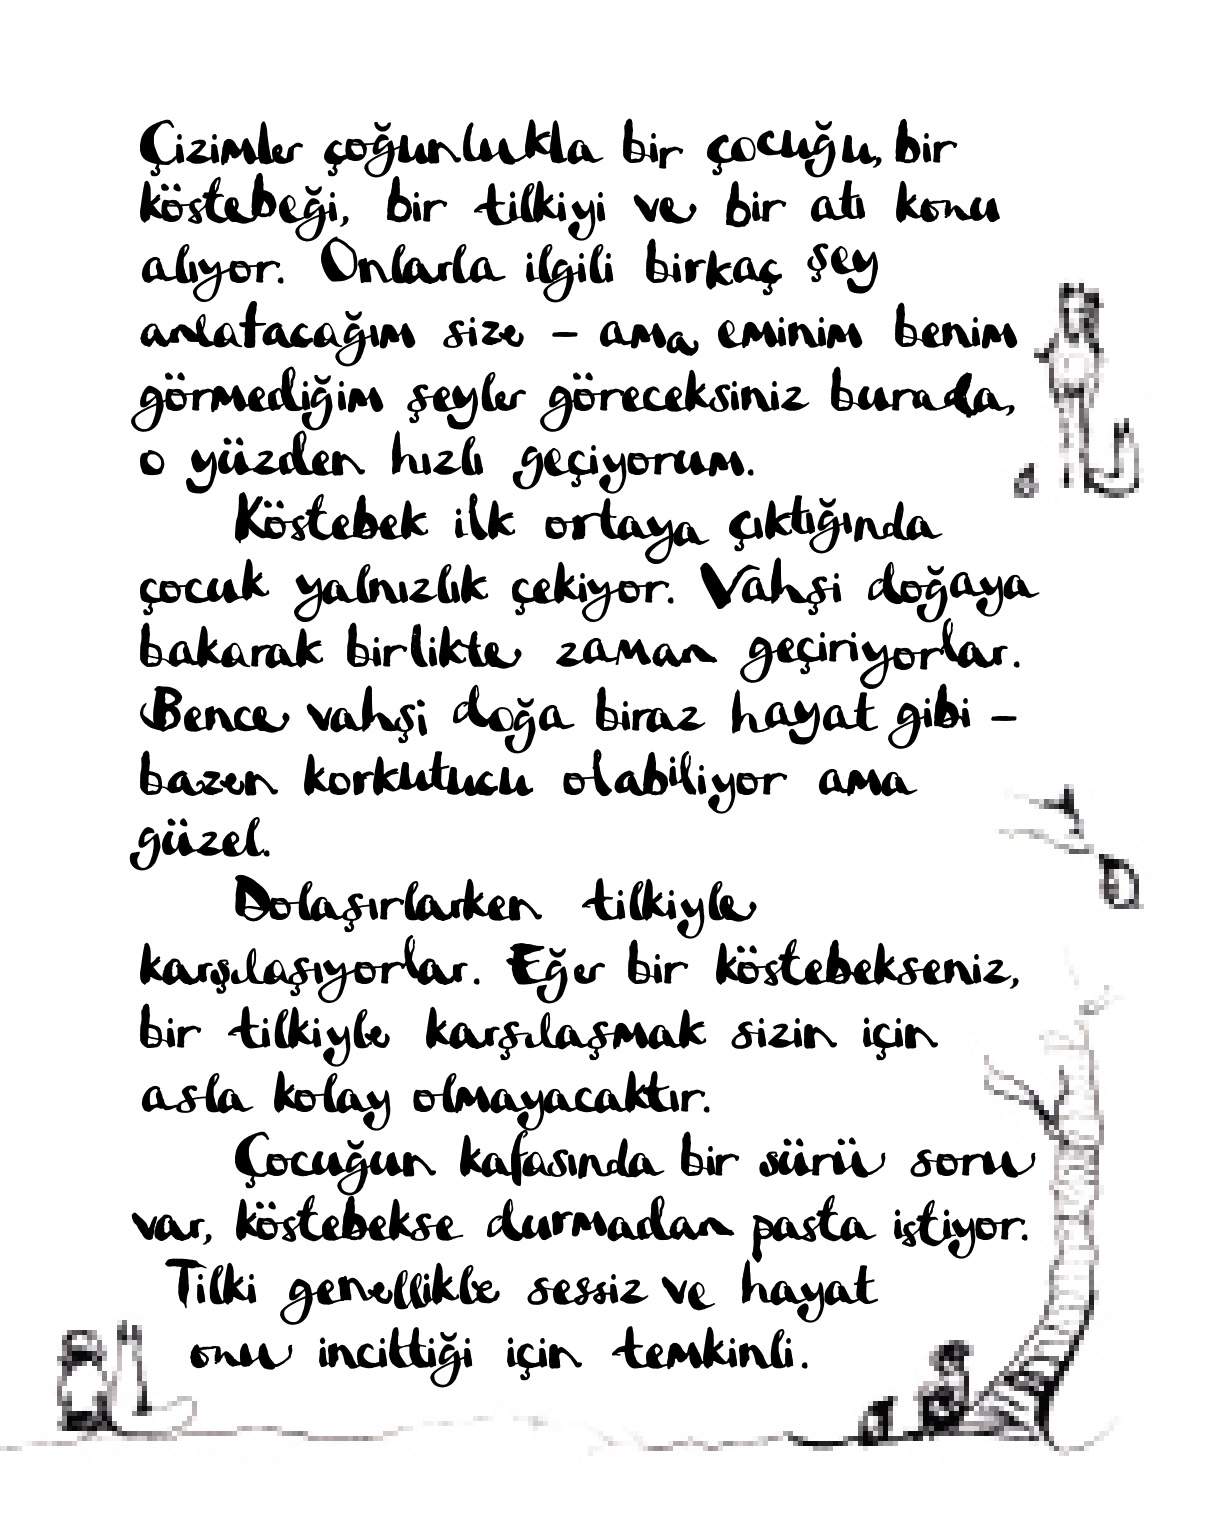 Çizimler çoğunlukla bir çocuğu, bir
köstebeği, bir tilkiyi ve bir atı konu
alıyor. Onlarla ilgili birkaç şey
anlatacağım size – ama eminim benim
görmediğim şeyler göreceksiniz burada,
o yüzden hızlı geçiyorum.
Köstebek ilk ortaya çıktığında
çocuk yalnızlık çekiyor. Vahşi doğaya
bakarak birlikte zaman geçiriyorlar.
Bence vahşi doğa biraz hayat gibi –
bazen korkutucu olabiliyor ama
güzel.
Dolaşırlarken tilkiyle
karşılaşıyorlar. Eğer bir köstebekseniz,
bir tilkiyle karşılaşmak sizin için
asla kolay olmayacaktır.
Çocuğun kafasında bir sürü soru
var, köstebekse durmadan pasta istiyor.
Tilki genellikle sessiz ve hayat
onu incittiği için temkinli.